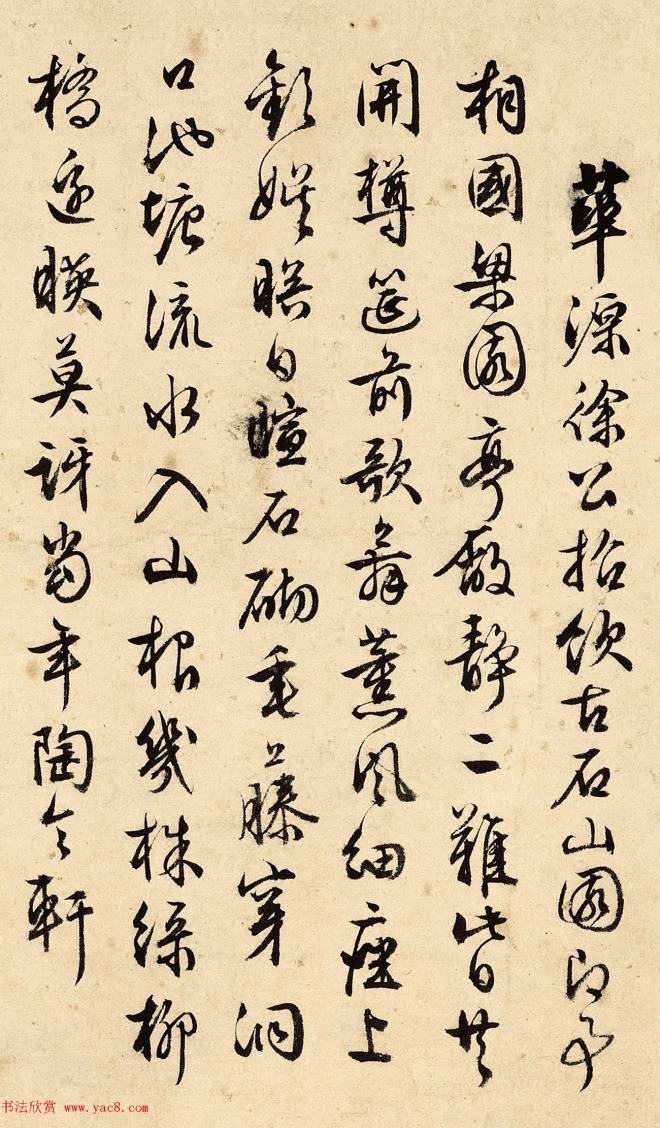 華源徐公招飲古石山園即事
相國梁園亭靜二難此日共
開樽筵前歌舞薰風細座上
歡娛日暄石砌垂藤穿洞
口池塘流水入山根幾株綠柳
橋邊映莫訝當年陶令軒
书法欣赏 www.yac8.com